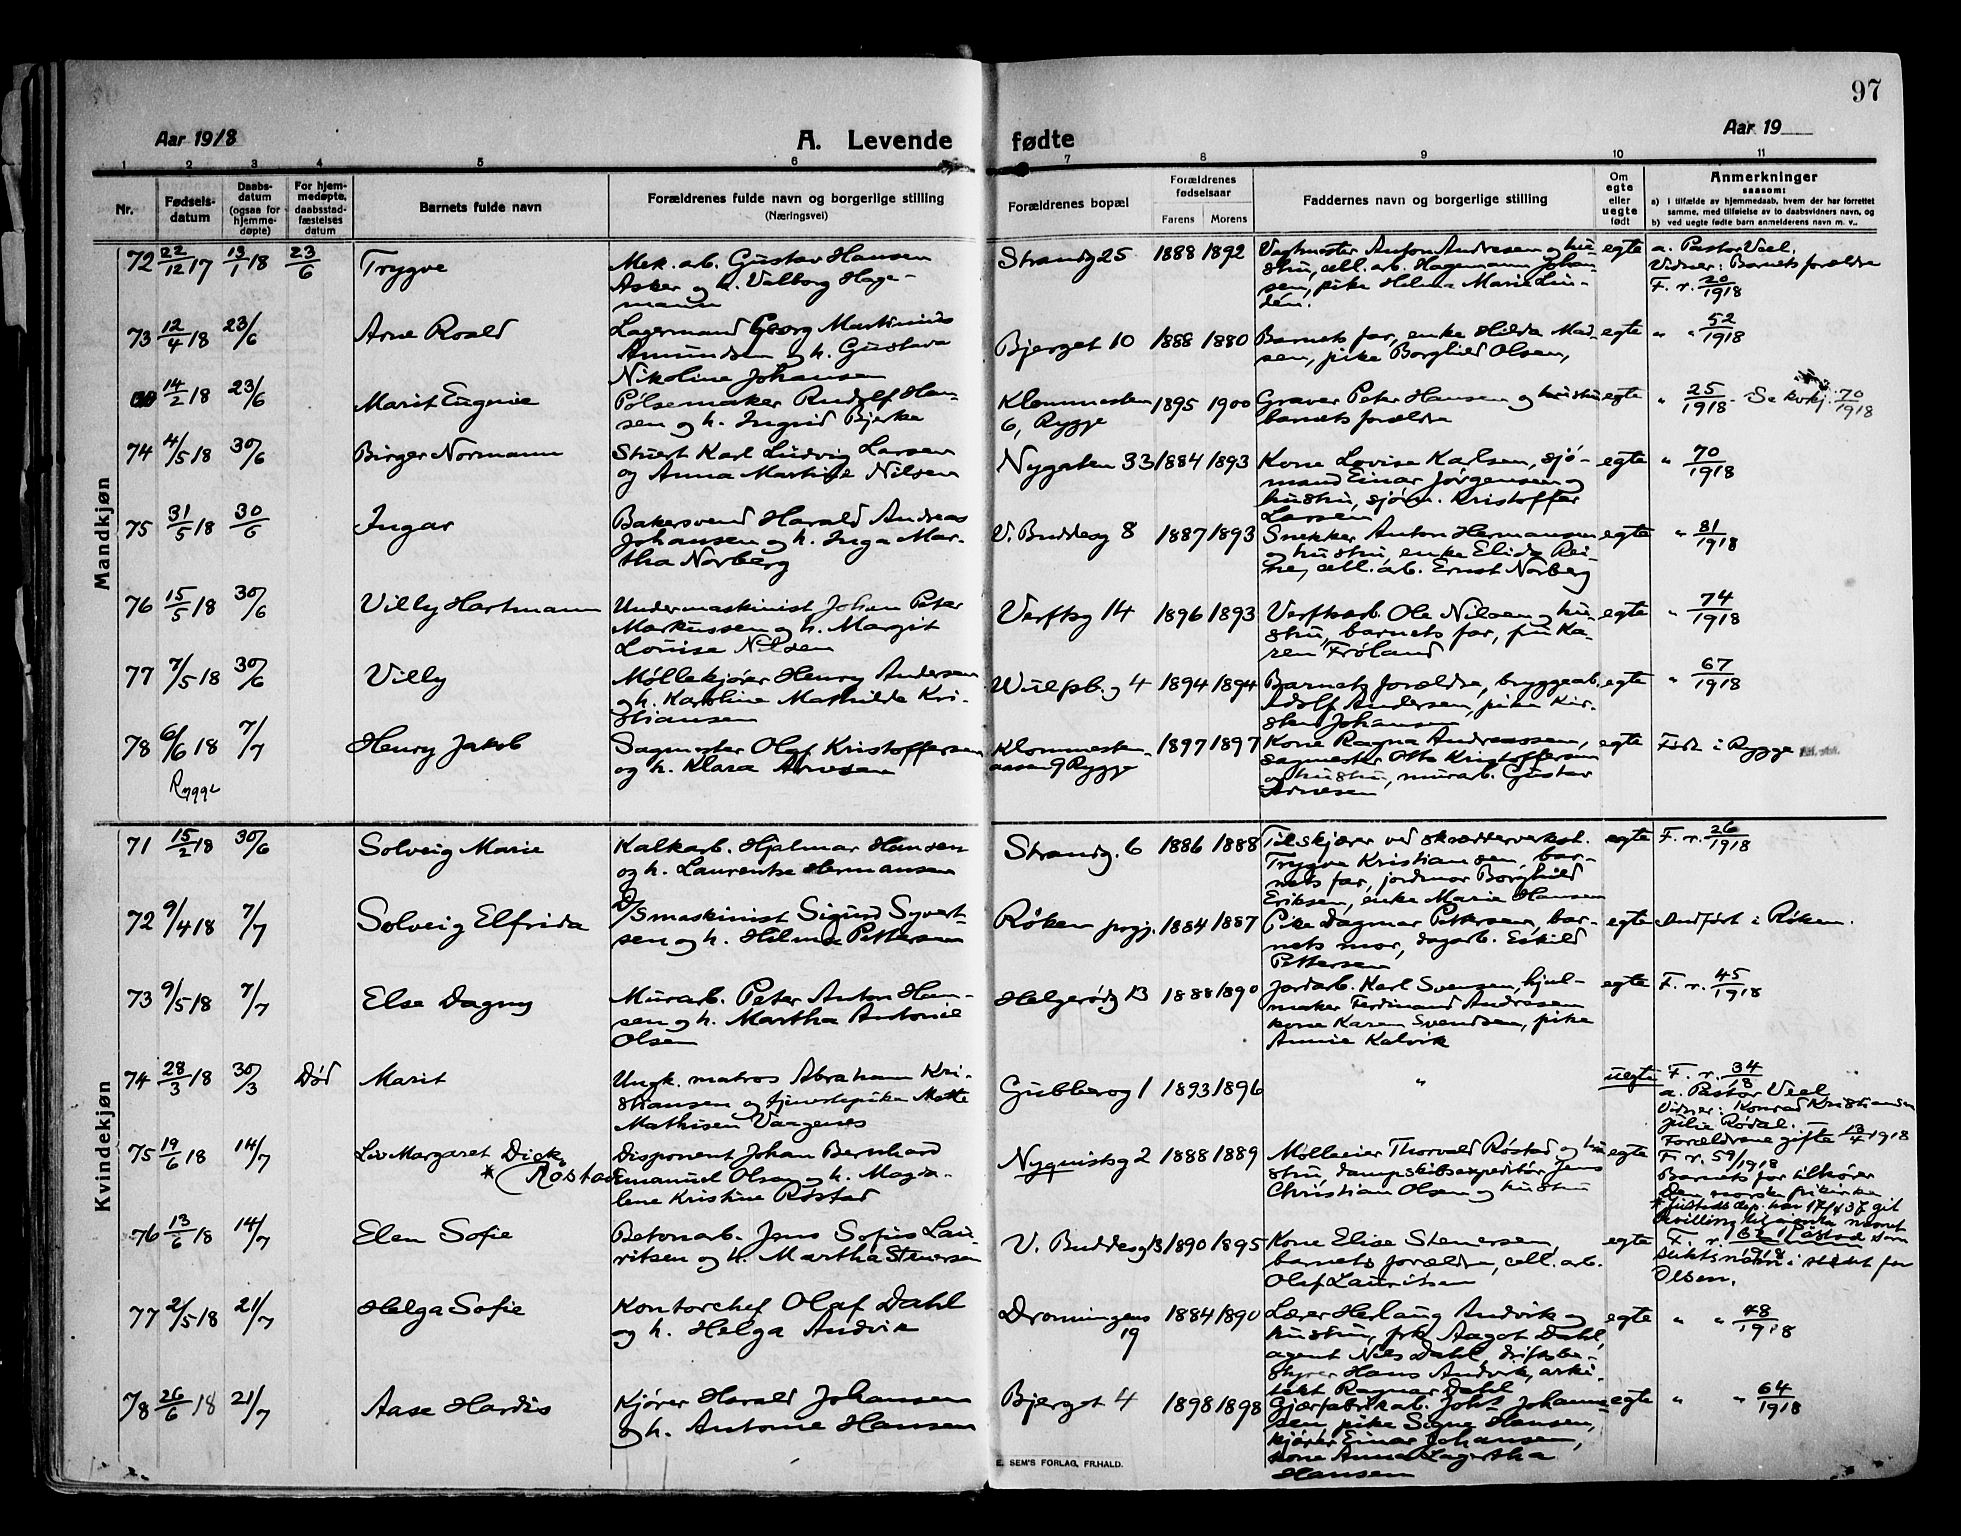 97
Aar 1918
A. Levende fødte
Aar 19
1 2 3 4 5 6 7 8 9 10 11
Nr.
Fødsels-
datum
Daabs-
datum
(ogsaa for
hjemme-
døpte)
For hjem-
medøpte,
daabsstad-
fæstelses
datum
Barnets fulde navn
Forældrenes fulde navn og borgerlige stilling
(Næringsvei)
Forældrenes bopæl
Forældrenes
fødselsaar
Farens Morens
Faddernes navn og borgerlige stilling
Om
egte
eller
uegte
født
Anmerkninger
saasom:
a) I tilfælde av hjemmedaab, hvem der har forrettet
samme, med tilføielse av to daabsvidners navn, og
b) ved uegte fødte barn anmelderens navn m. v..
Mandkjøn
72 22/12 17 13/1 18 23/6 Trygve
Mek. arb. Gustav Hansen
Asker og h. Valborg Hage-
mann
Strandg 25 1888 1892
Vegtmester Anton Andresen og hu-
stru, cell. arb. Hagemann Johan-
sen, pike Helma Marie Lin-
dén.
egte
a. Pastor Veel.
Vidner: Barnets forældre
F. r. 20/1918
73 12/4 18 23/6 Arne Roald
Lagermand Georg Martinius
Amundsen og h. Gustava
Nikoline Johansen
Bjerget 10 1888 1880
Barnets far, enke Hilda Mad-
sen, pike Borghild Olsen,
egte " " 52/1918
14/2 18 23/6 Marit Eugenie
Pølsemaker Rudolf Han-
sen og h. Ingrid Bjerke
Klommesten
6, Rygge
1895 1900
Graver Peter Hansen og hustru
barnets forældre
egte " 25/1918 - Se kvkj. 70/1918
74 4/5 18 30/6 Birger Normann
Stuert Karl Ludvig Larsen
og Anna Martine Nilsen
Nygaten 33 1884 1893
Kone Lovise Karlsen, sjö-
mand Einar Jørgensen og
hustru, sjöm. Kristoffer
Larsen
egte " 70/1918
75 31/5 18 30/6 Ingar
Bakersvend Harald Andreas
Johansen og h. Inga Mar-
tha Norberg
V. Buddesg 8 1887 1893
Snekker Anton Hermansen
og hustru, enke Elida Rei-
ne, cell. arb. Ernst Norberg
egte " 81/1918
76 15/5 18 30/6 Villy Hartmann
Undermaskinist Johan Peter
Markussen og h. Margit
Louise Nilsen
Verftsg 14 1896 1893
Verftsarb. Ole Nilsen og hu-
stru, barnets far, frk Ka-
ren Frøland
egte " 74/1918
77 7/5 18 30/6 Villy
Møllekjører Henry Andersen
og h. Karoline Mathilde Kri-
stiansen
Wulfsb. g 4 1894 1894
Barnets forældre, bryggearb.
Adolf Andersen, pike Kir-
sten Johansen
egte " 67/1918
78 6/6 18 7/7 Henry Jakob
Rygge
Sagmester Olaf Kristoffersen
og h. Klara Arnesen
Klommesten-
aasen 9 Rygge
1897 1897
Kone Ragna Andreassen,
sagmester Otto Kristoffersen
og hustru, murarb. Gustav
Arnesen
egte Født i Rygge
Kvindekjøn
71 15/2 18 30/6 Solveig Marie
Kalkarb. Hjalmar Hansen
og h. Laurentse Hermansen
Strandg. 6 1886 1888
Tilskjærer ved skrædderverkst.
Trygve Kristiansen, bar-
nets far, jordmor Borghild
Eriksen, enke Marie Hansen
egte F. r. 26/1918
72 9/4 18 7/7 Solveig Elfrida
D/S maskinist Sigurd Syvert-
sen og h. Helma Pettersen
Røken prgj. 1884 1887
Pike Dagmar Pettersen, bar-
nets mor, dagarb. Eskild
Pettersen
egte Indført i Røken.
73 9/5 18 7/7 Else Dagny
Murarb. Peter Anton Han-
sen og h. Martha Antonie
Olsen
Helgerødg 13 1888 1890
Jordarb. Karl Svensen, hjul-
maker Ferdinand Andresen
kone Karen Svendsen, pike
Annie Kalvik
egte F. r. 45/1918
74 28/3 18 30/3 Død Marit
Ungk. matros Abraham Kri-
stiansen og tjenestepike Mette
Mathisen Vargenes
Gubberog 1 1893 1896
"
uegte
F. r. 34/18
a. Pastor Veel
Vidner: Konrad Kristiansen
Julie Rødal.
Forældrene gifte 13/4 1918
75 19/6 18 14/7 Liv Margaret Dick
* (Røstad
Disponent Johan Bernhard
Emanuel Olsen og h. Magda-
lene Kristine Røstad
Nyquistsg 2 1888 1889
Mølleeier Thorvald Røstad og hu-
stru, dampskibsexpeditør Jens
Christian Olsen og hustru
egte
F. r. 59/1918
Barnets far tilhører
Den norske frikirke
* Justisdep. har 17/4 37 git
bevilling til a ta navnet
Røstad som
slektsnavn i stedet for
Olsen.
76 13/6 18 14/7 Elen Sofie
Betonarb. Jens Sofus Lau-
ritsen og h. Martha Stenersen
V. Buddesg 13 1890 1895
Kone Elise Stenersen,
barnets forældre, cell. arb.
Olaf Lauritsen
egte F. r. 62/1918
77 2/5 18 21/7 Helga Sofie
Kontorchef Olaf Dahl
og h. Helga Andvik
Dronningens
19
1884 1890
Lærer Herlaug Andvik og
hustru, frk. Aagot Dahl,
agent Nils Dahl, driftsbe-
styrer Hans Andvik, arki-
tekt Ragnar Dahl
egte " " 48/1918
78 26/6 18 21/7 Aase Hardis
Kjører Harald Johansen
og h. Antonie Hansen
Bjerget 4 1898 1898
Gjærfabrikarb. Johs Johann-
sen, pike Signe Hansen,
kjører Einar Johansen,
kone Anna Lagertha
Hansen
egte " " 64/1918
E. SEM'S FORLAG, FR.HALD.